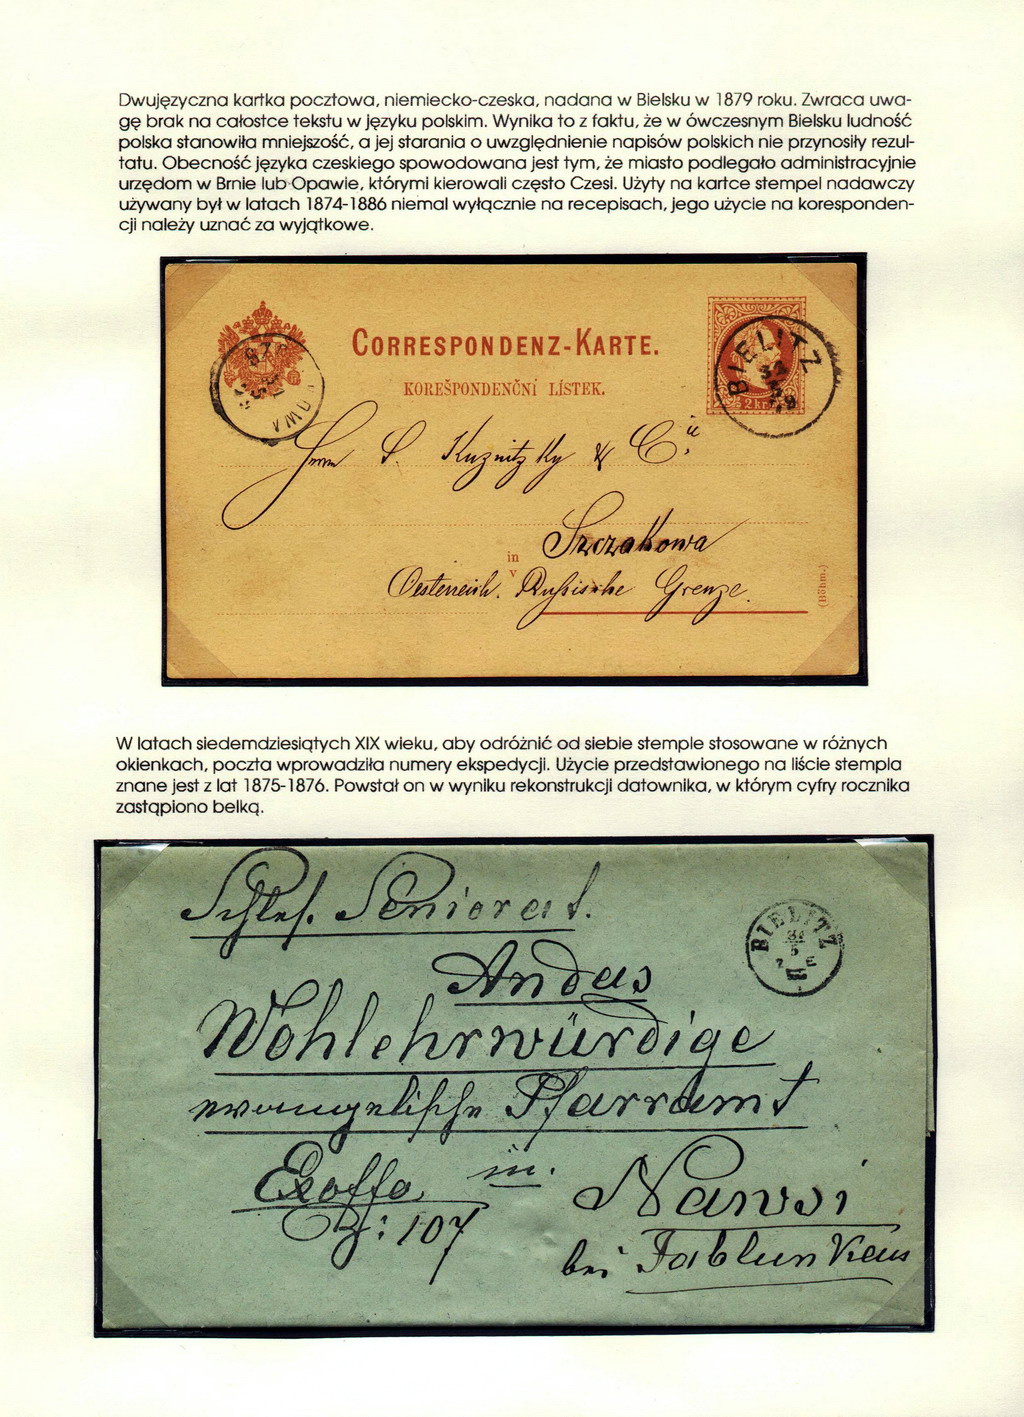 Dwujęzyczna kartka pocztowa, niemiecko-czeska, nadana w Bielsku w 1879 roku. Zwraca uwa-
gę brak na całostce tekstu w języku polskim. Wynika to z faktu, że w ówczesnym Bielsku ludność
polska stanowiła mniejszość, a jej starania o uwzględnienie napisów polskich nie przynosiły rezul-
tatu. Obecność języka czeskiego spowodowana jest tym, że miasto podlegało administracyjnie
urzędom w Brnie lub Opawie, którymi kierowali często Czesi. Użyty na kartce stempel nadawczy
używany był w latach 1874-1886 niemal wyłącznie na recepisach, jego użycie na koresponden-
cji należy uznać za wyjątkowe.
CORRESPONDENZ-KARTE.
KOREŠPONDENČNÍ LÍSTEK.
BIELITZ
2 KR.
Herrn S. Kuznitzky & Cie
in Szczakowa
v
Oesterreich. Rußische Grenze.
(Böhm.)
W latach siedemdziesiątych XIX wieku, aby odróżnić od siebie stemple stosowane w różnych
okienkach, poczta wprowadziła numery ekspedycji. Użycie przedstawionego na liście stempla
znane jest z lat 1875-1876. Powstał on w wyniku rekonstrukcji datownika, w którym cyfry rocznika
zastąpiono belką.
Schles. Seniorat.
BIELITZ
31
5
7 E
An das
Wohlehrwürdige
evangelische Pfarramt
Exoffo in Nawsi
Z: 107
bei Jablunkau